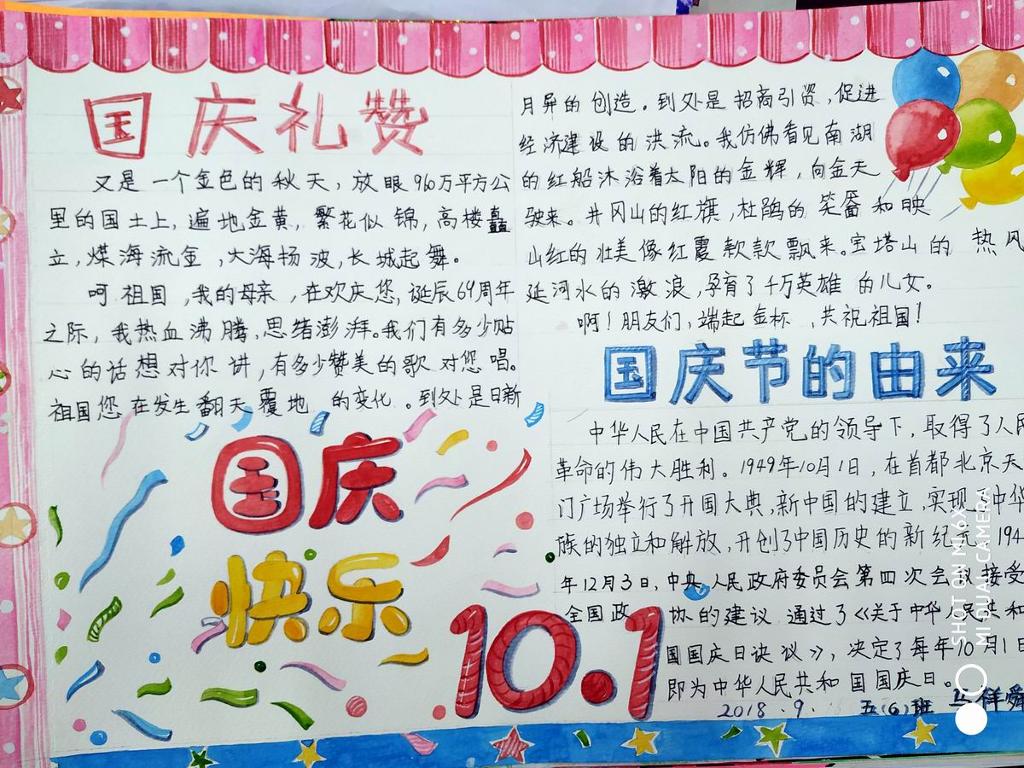 国庆礼赞
又是一个金色的秋天，放眼960万平方公
里的国土上，遍地金黄，繁花似锦，高楼矗
立，煤海流金，大海扬波，长城起舞。
呵祖国，我的母亲，在欢庆您，诞辰69周年
之际，我热血沸腾，思绪澎湃。我们有多少贴
心的话想对你讲，有多少赞美的歌对您唱。
祖国您在发生翻天覆地的变化。到处是日新
月异的创造。到处是招商引资，促进
经济建设的洪流。我仿佛看见南湖
的红船沐浴着太阳的金辉，向金天
驶来。井冈山的红旗，杜鹃的笑靥和映
山红的壮美像红霞款款飘来。宝塔山的热风
延河水的激浪，孕育了千万英雄的儿女。
啊！朋友们，端起金杯，共祝祖国！
国庆节的由来
中华人民在中国共产党的领导下，取得了人民
革命的伟大胜利。1949年10月1日，在首都北京天
门广场举行了开国大典，新中国的建立，实现 中华
族的独立和解放，开创了中国历史的新纪元 194
年12月3日，中央人民政府委员会第四次会 接受
全国政 协的建议 通过了《关于中华人民共和
国国庆日决议》，决定了每年10月1日
即为中华人民共和国国庆日。
2018.9. 五(6)班
国庆
快乐
10.1
SHOT ON MIX
MI DUAL CAMERA